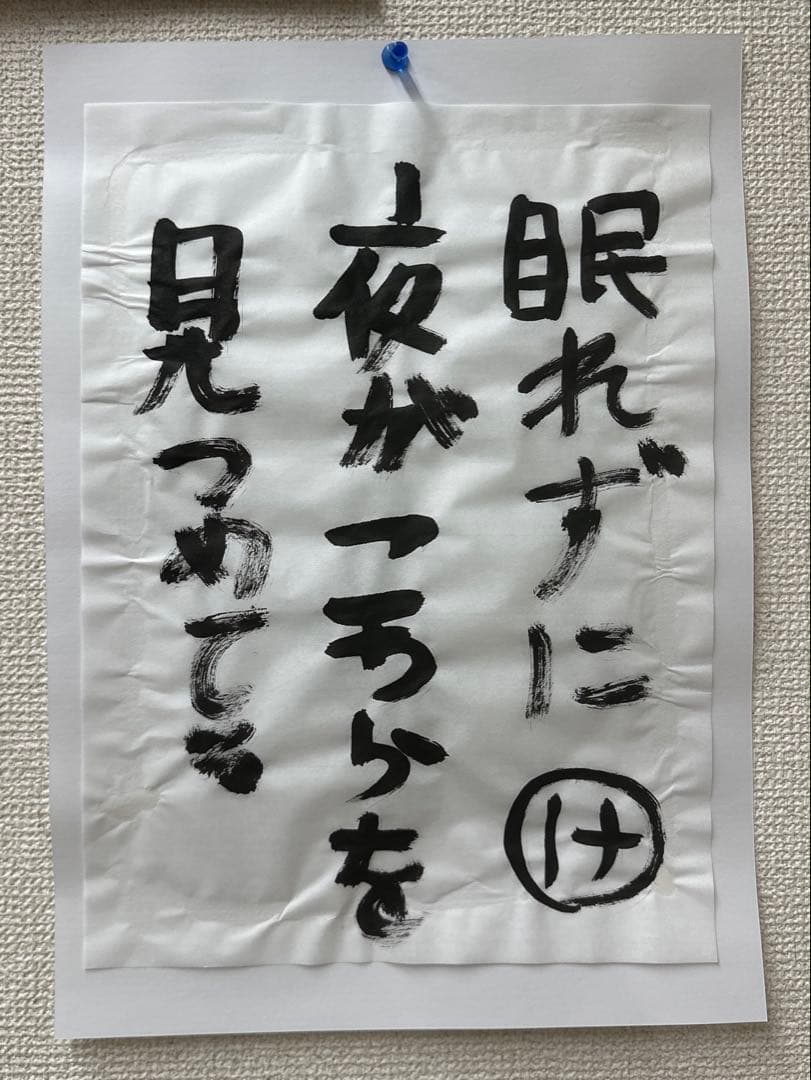 眠れずに け
夜がこちらを
見つめてる